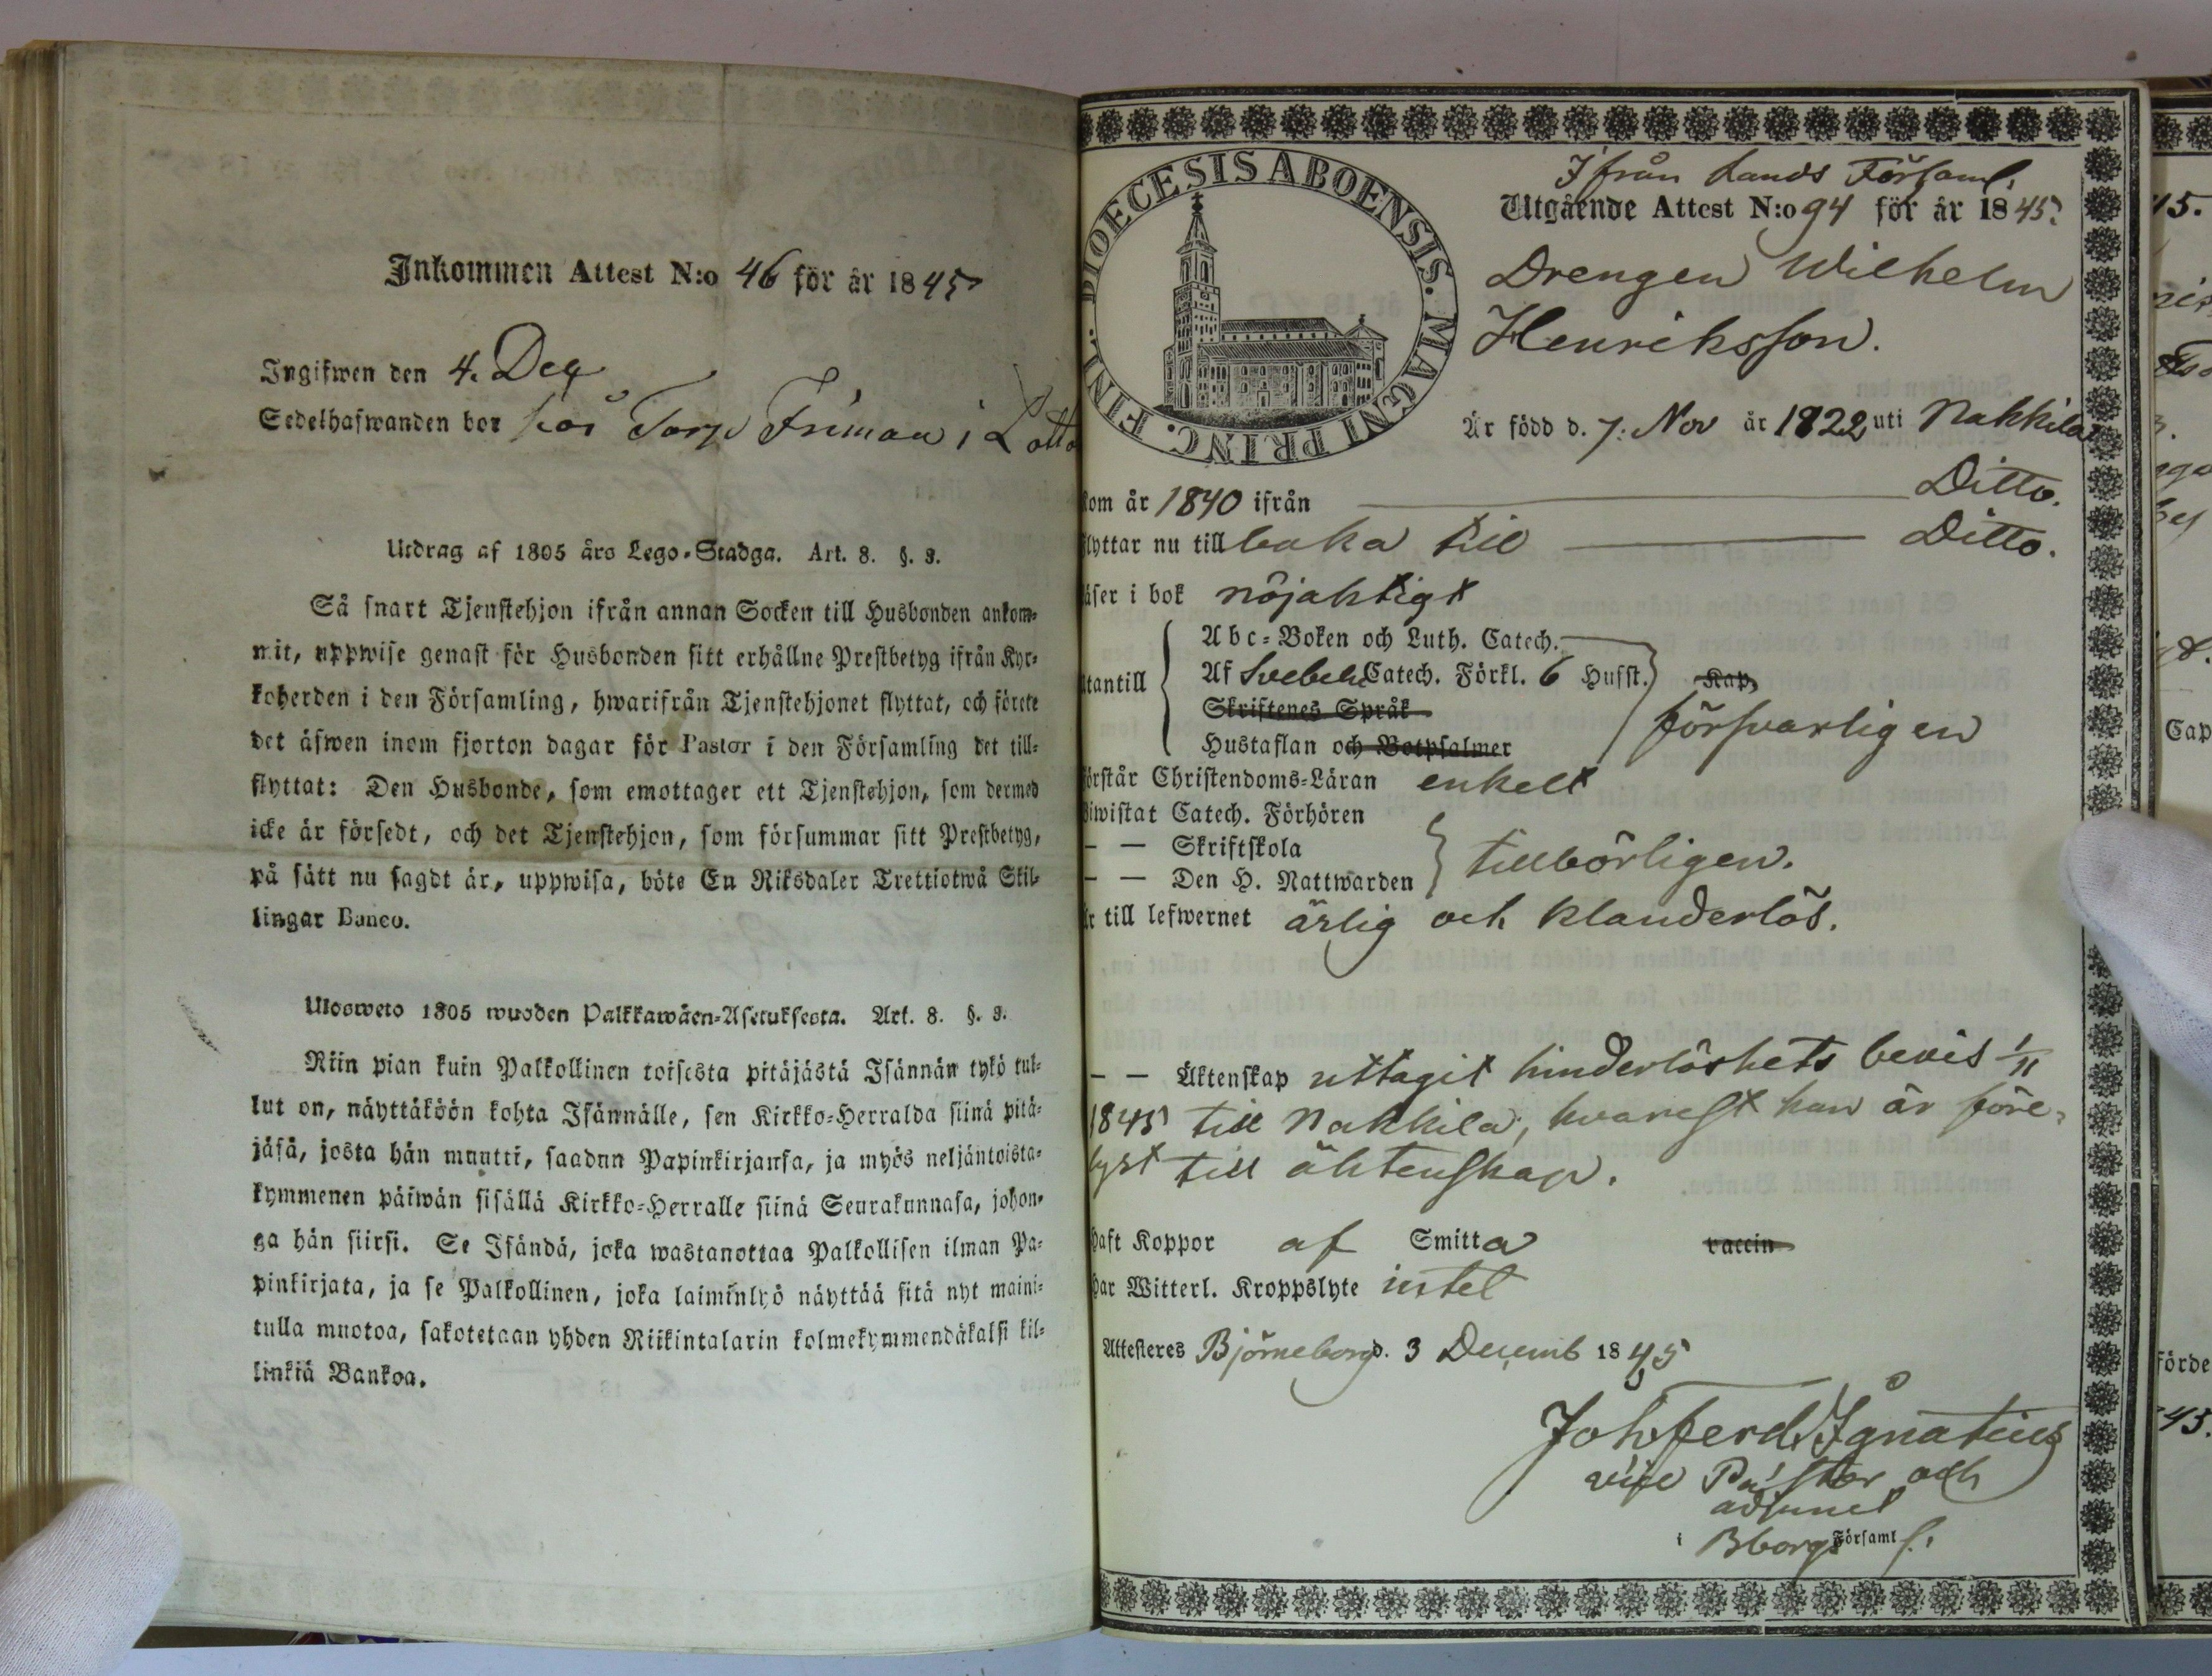 Inkommen Attest N:o 46 för år 1845
Ingifwen den 4. Dec
Sedelhafwanden bor hos Torp Friman i Lotto
Utdrag af 1805 års Lego-Stadga. Art. 8. §. 3.
Så snart Tjenstehjon ifrån annan Socken till Husbonden ankom-
mit, uppwise genast för Husbonden sitt erhållne Prestbetyg ifrån Kyr-
koherden i den Församling, hwarifrån Tjenstehjonet flyttat, och förete
det äfwen inom fjorton dagar för Pastor i den Församling det till-
flyttat: Den Husbonde, som emottager ett Tjenstehjon, som dermed
icke är försedt, och det Tjenstehjon, som försummar sitt Prestbetyg,
på sätt nu sagdt är, uppwisa, böte En Riksdaler Trettiotwå Skil-
lingar Banco.
Ulosweto 1805 wuoden Palkkawäen-Asetuksesta. Art. 8. §. 3.
Niin pian kuin Palkollinen toisesta pitäjästä Isännän tykö tul-
lut on, näyttäköön kohta Isännälle, sen Kirkko-Herralda siinä pitä-
jäsä, josta hän muutti, saadun Papinkirjansa, ja myös neljäntoista-
kymmenen päiwän sisällä Kirkko-Herralle siinä Seurakunnasa, johon-
ga hän siirsi. Se Isändä, joka wastanottaa Palkollisen ilman Pa-
pinkirjata, ja se Palkollinen, joka laiminlyö näyttää sitä nyt maini-
tulla muotoa, sakotetaan yhden Riikintalarin kolmekymmendäkalsi kil-
linkiä Bankoa.
DIOECESIS ABOENSIS. MAGNI PRINC. FINL.
Ifrån Lands Församl.
Utgående Attest N:o 94 för år 1845.
Drengen Wilhelm
Henriksson.
Är född d. 7. Nov år 1822 uti Nakkila
kom år 1840 ifrån Ditto.
flyttar nu till baka till Ditto.
läser i bok nöjaktigt
Abc-Boken och Luth. Catech.
utantill Af Svebelii Catech. Förkl. 6 Hufst. Kap.
Skriftenes Språk
Hustaflan och Botpsalmer försvarligen
förstår Christendoms-Läran enkelt
biwistat Catech. Förhören
— — Skriftskola
— — Den H. Nattwarden tillbörligen.
är till lefwernet ärlig och klanderlös.
— — Äktenskap uttagit hinderlöshets bevis 1/11
1845 till Nakkila, hvarest han är före-
lyst till äktenskap.
haft Koppor af Smitta vaccin
har Witterl. Kroppslyte intet
Attesteres Björneborg d. 3 Decemb 1845
Joh. Ferd. Ignatius
vice Pastor och
adjunct
i Bborgs Församl.